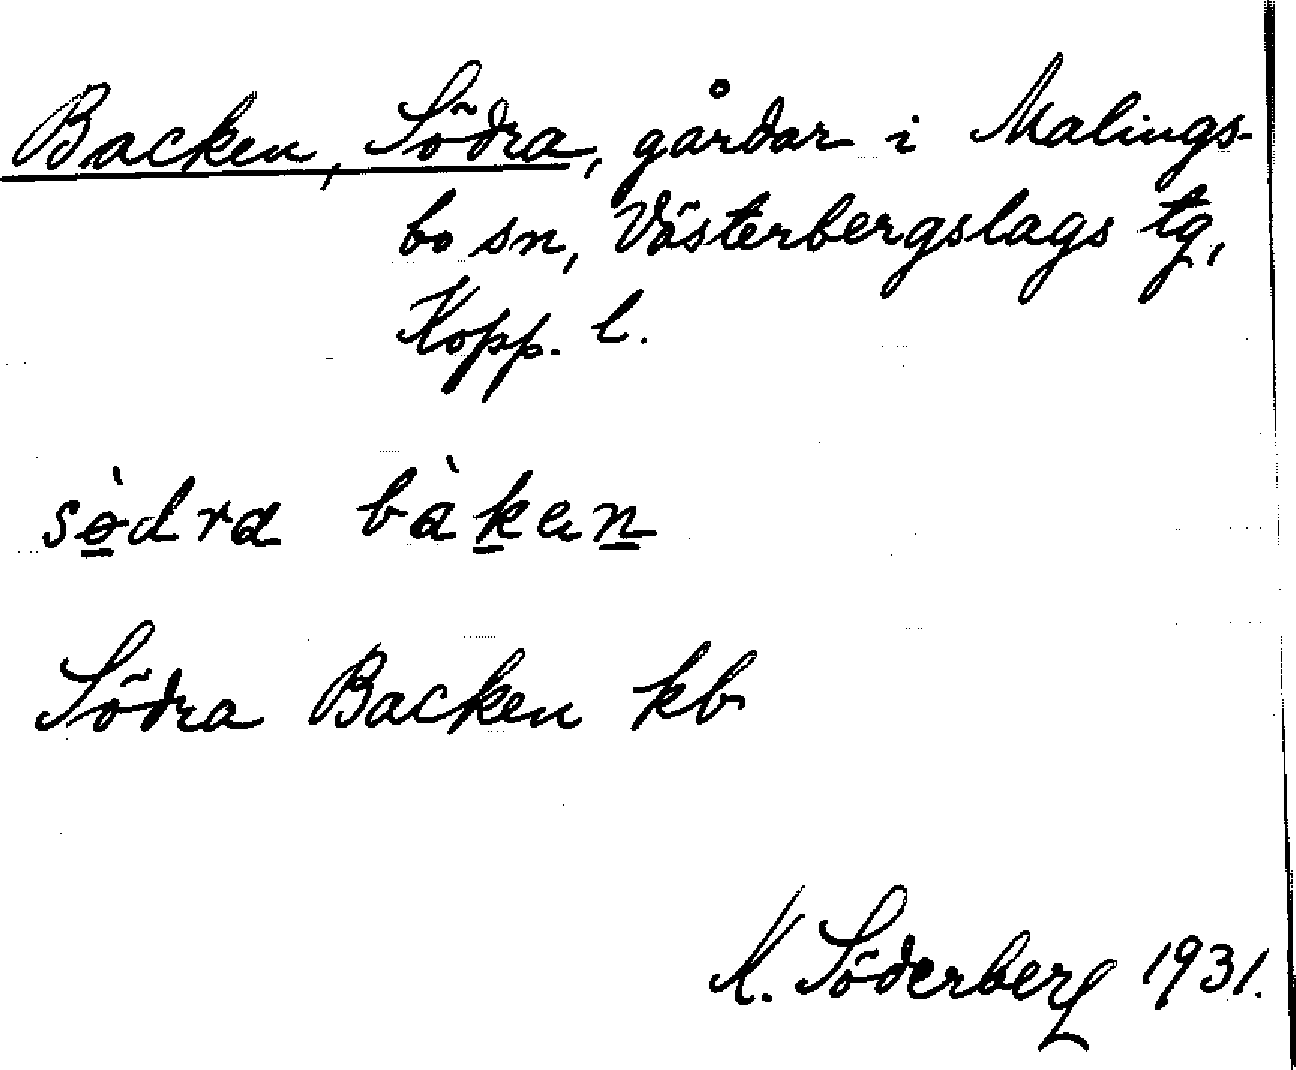 Backen, Södra, gårdar i Malings-
bo sn, Västerbergslags tg,
Kopp. l.
sö̀dra bàken
Södra Backen kb
K. Söderberg 1931.